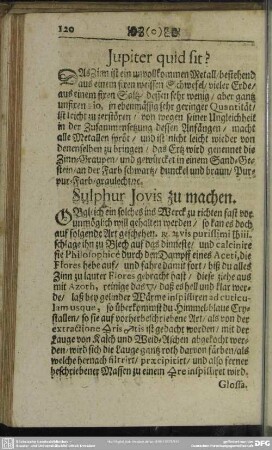 120
Jupiter quid sit?
DAs Zinn ist ein unvollkommen Metall/ bestehend
aus einem fixen weissen Schwefel/ vieler Erde/
aus einem fixen Saltz/ dessen sehr wenig/ aber gantz
unfixen ☿io, in ebenmässig sehr geringer Quantität/
ist leicht zu zerstören/ von wegen seiner Ungleichheit
in der Zusammensetzung dessen Anfängen/ macht
alle Metallen spröt/ und ist nicht leicht wieder von
denenselben zu bringen/ das Ertz wird genennet bis
Zinn-Graupen/ und gewircket in einem Sand-Ge-
stein/ an der Farb schwartz/ dunckel und braun/ Pur-
pur-Farb/ graulecht/ ꝛc.
Sulphur Jovis zu machen.
OBgleich ein solches ins Werck zu richten fast vor
unmöglich will gehalten werden/ so kan es doch
auf folgende Art geschehen. ♃ ♃vis purissimi
schlage ihn zu Blech auf das dinneste/ und calcinire
sie Philosophicè durch den Dampff eines Aceti, die
Flores hebe auf/ und fahre damit fort/ biß du alles
Zinn zu lauter Flores gebracht hast/ diese ziehe aus
mit Azoth, reinige das ▽/ daß es hell und klar wer-
de/ laß bey gelinder Wärme inspissiren ad cuticu-
lam usque, so überkommst du Himmel-blaue Cry-
stallen/ so sie auf vorherbeschriebene Art/ als von der
extractione ist gedacht worden/ mit der
Lauge von Kalch und Weid-Aschen abgekocht wer-
den/ wird sich die Lauge gantz roth darvon färben/ als
welche hernach filtrirt/ præcipitirt/ und also ferner
beschriebener Massen zu einem inspissirt wird.
Glossa.